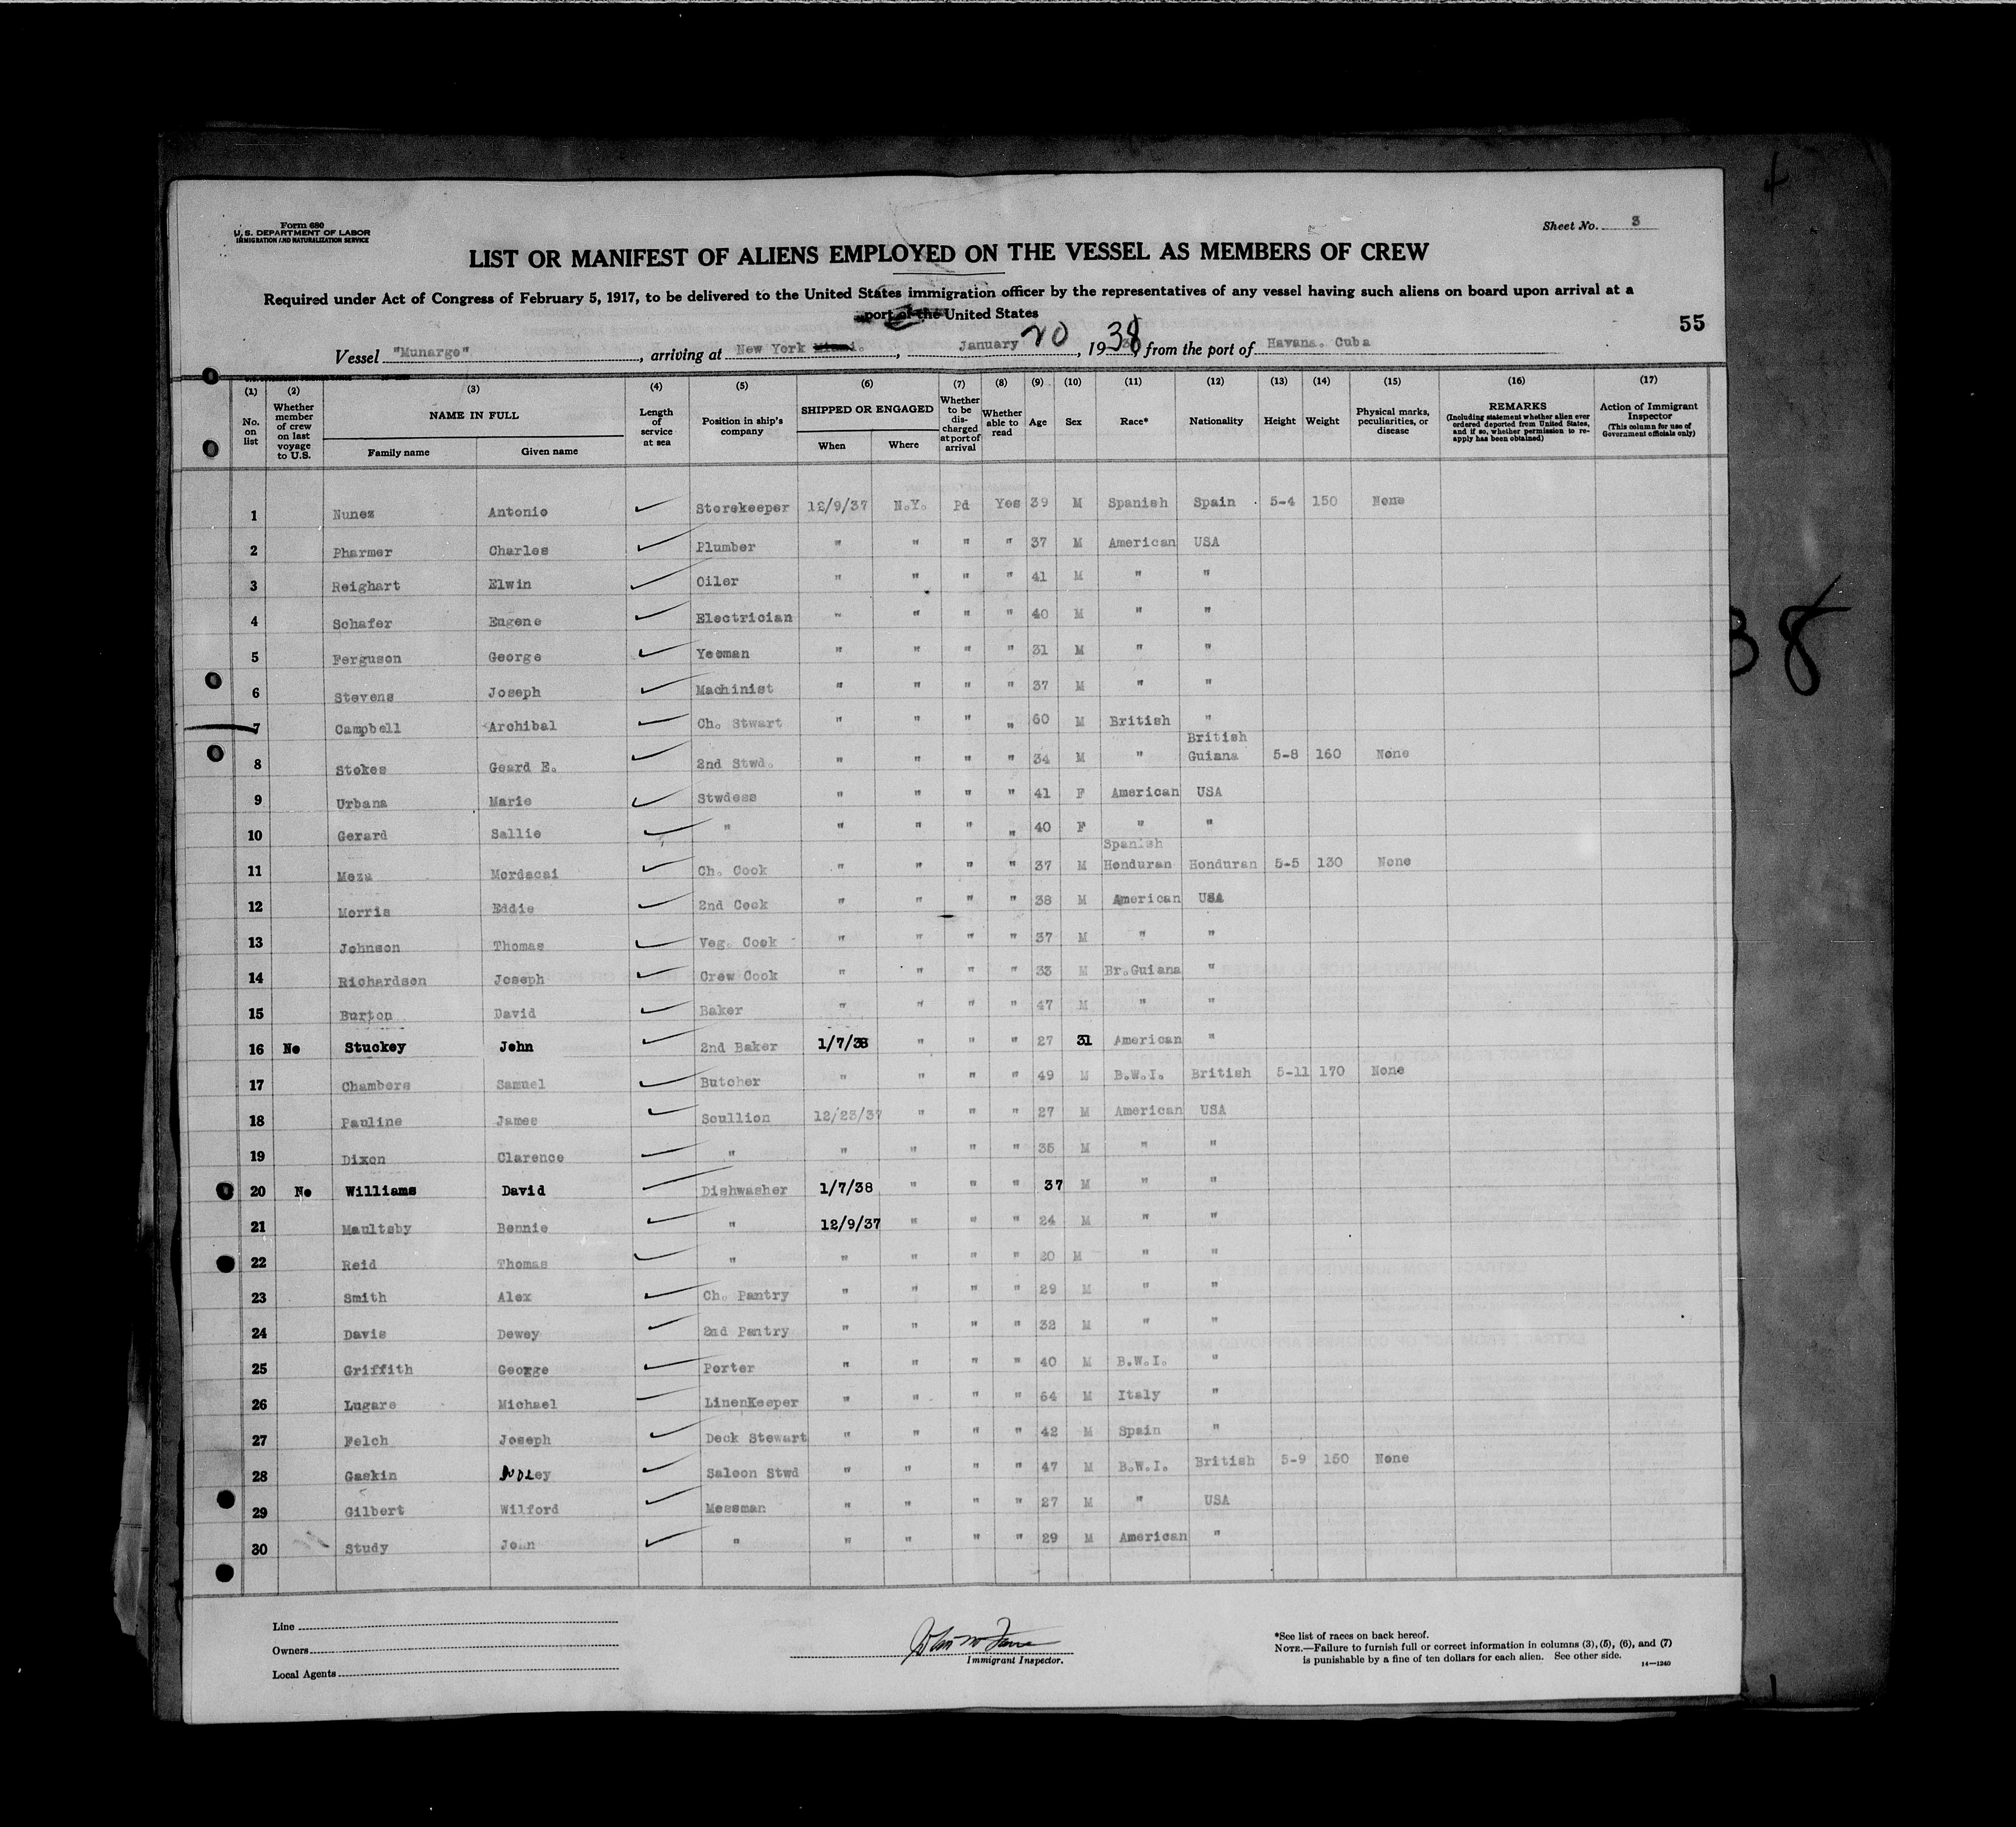 Form 680
U. S. DEPARTMENT OF LABOR
IMMIGRATION AND NATURALIZATION SERVICE
Sheet No. 3
LIST OR MANIFEST OF ALIENS EMPLOYED ON THE VESSEL AS MEMBERS OF CREW
Required under Act of Congress of February 5, 1917, to be delivered to the United States immigration officer by the representatives of any vessel having such aliens on board upon arrival at a
port of the United States
55
Vessel "Munargo", arriving at New York Miami., January 20, 1938, from the port of Havana. Cuba
(1) (2) (3) (4) (5) (6) (7) (8) (9) (10) (11) (12) (13) (14) (15) (16) (17)
No. on list Whether member of crew on last voyage to U.S. NAME IN FULL Family name Given name Length of service at sea Position in ship's company SHIPPED OR ENGAGED When Where Whether to be discharged at port of arrival Whether able to read Age Sex Race* Nationality Height Weight Physical marks, peculiarities, or disease REMARKS (Including statement whether alien ever ordered deported from United States, and if so, whether permission to reapply has been obtained) Action of Immigrant Inspector (This column for use of Government officials only)
1 Nunez Antonio Storekeeper 12/9/37 N.Y. Pd Yes 39 M Spanish Spain 5-4 150 None
2 Pharmer Charles Plumber " " " " 37 M American USA
3 Reighart Elwin Oiler " " " " 41 M " "
4 Schafer Eugene Electrician " " " " 40 M " "
5 Ferguson George Yeoman " " " " 31 M " "
6 Stevens Joseph Machinist " " " " 37 M " "
7 Campbell Archibal Ch. Stwart " " " " 60 M British "
8 Stokes Geard E. 2nd Stwd. " " " " 34 M " British Guiana 5-8 160 None
9 Urbana Marie Stwdess " " " " 41 F American USA
10 Gerard Sallie " " " " " 40 F " "
11 Meza Mordacai Ch. Cook " " " " 37 M Spanish Honduran Honduran 5-5 130 None
12 Morris Eddie 2nd Cook " " " " 38 M American USA
13 Johnson Thomas Veg. Cook " " " " 37 M " "
14 Richardson Joseph Crew Cook " " " " 33 M Br.Guiana "
15 Burton David Baker " " " " 47 M " "
16 No Stuckey John 2nd Baker 1/7/38 " " " 27 31 American "
17 Chambers Samuel Butcher " " " " 49 M B.W.I. British 5-11 170 None
18 Pauline James Scullion 12/23/37 " " " 27 M American USA
19 Dixon Clarence " " " " " 35 M " "
20 No Williams David Dishwasher 1/7/38 " " " 37 M " "
21 Maultsby Bennie " 12/9/37 " " " 24 M " "
22 Reid Thomas " " " " " 20 M " "
23 Smith Alex Ch. Pantry " " " " 29 M " "
24 Davis Dewey 2nd Pantry " " " " 32 M " "
25 Griffith George Porter " " " " 40 M B.W.I. "
26 Lugare Michael LinenKeeper " " " " 64 M Italy "
27 Felch Joseph Deck Stewart " " " " 42 M Spain "
28 Gaskin Saloon Stwd " " " " 47 M B.W.I. British 5-9 150 None
29 Gilbert Wilford Messman " " " " 27 M " USA
30 Study John " " " " " 29 M American "
Line
Owners
Local Agents
Immigrant Inspector.
*See list of races on back hereof.
NOTE.—Failure to furnish full or correct information in columns (3), (5), (6), and (7)
is punishable by a fine of ten dollars for each alien. See other side.
14—1240
38